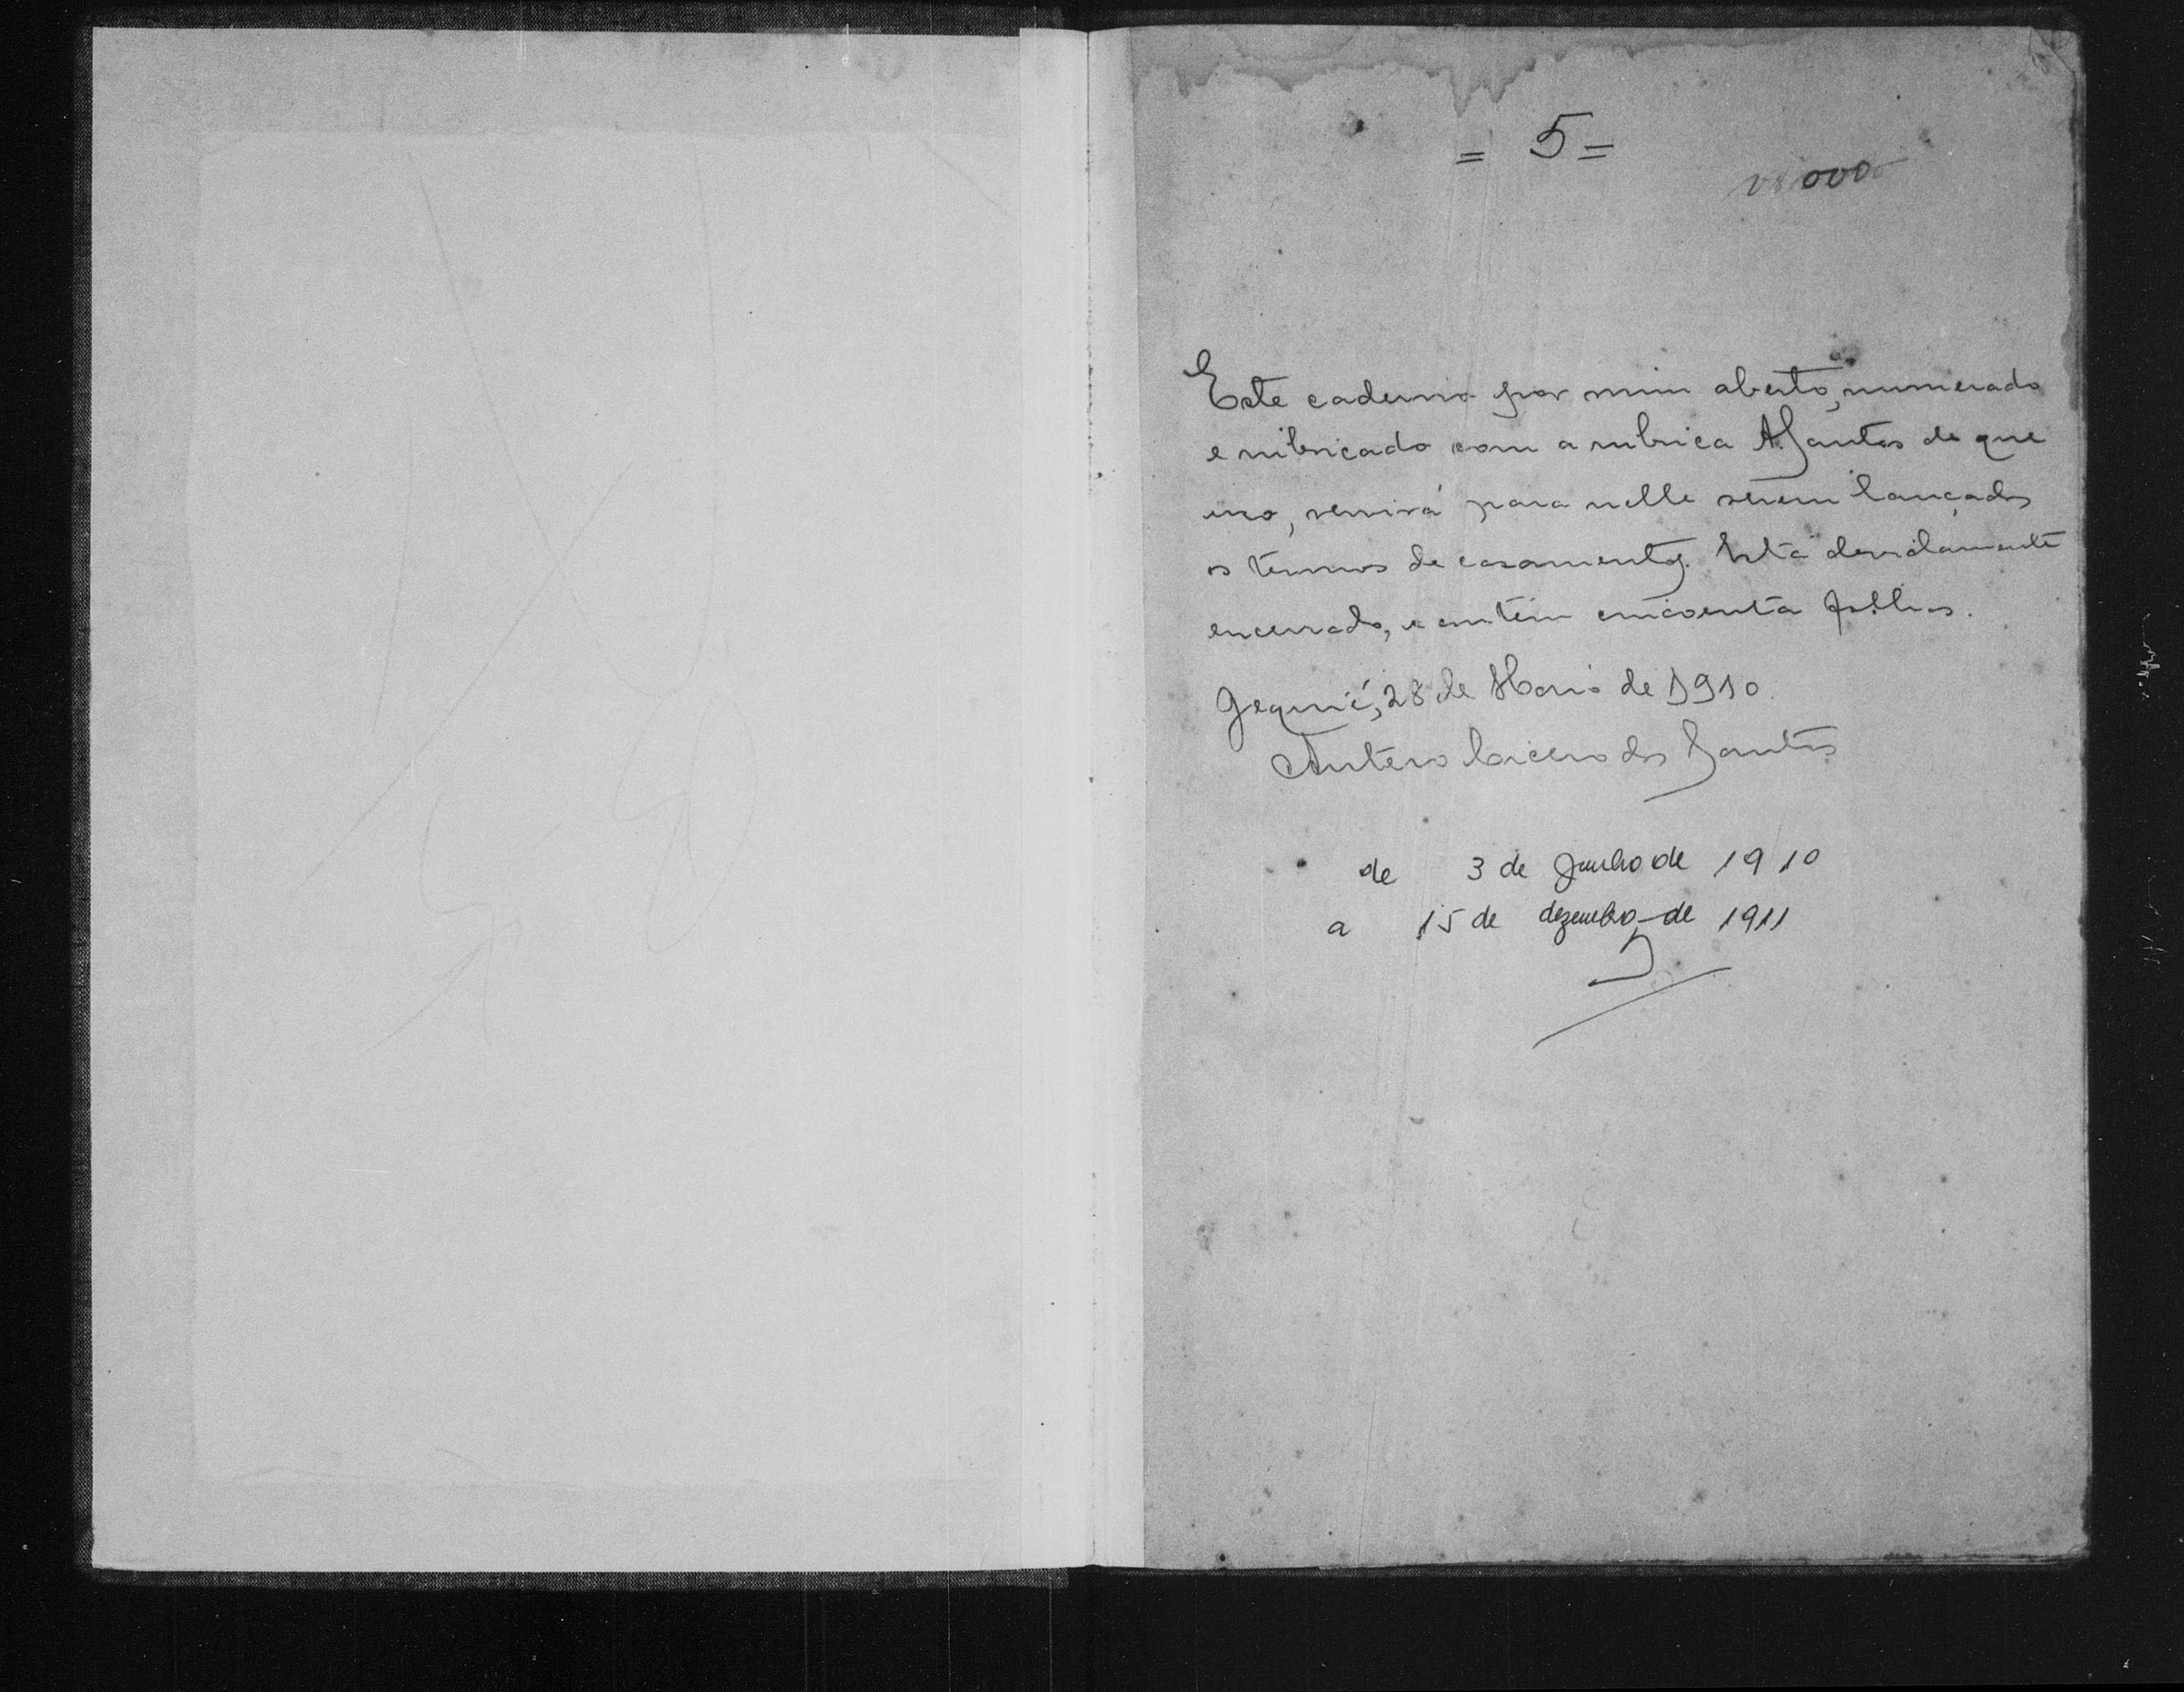 = 5 =
000
Este caderno por mim aberto, numerado
e rubricado com a rubrica ASantos de que
uso, servirá para nelle serem lançados
os termos de casamentos. Está devidamente
encerrado, e contém cincoenta folhas.
Jequié, 28 de Maio de 1910.
Antero Cicero dos Santos
de 3 de Junho de 1910
a 15 de dezembro de 1911